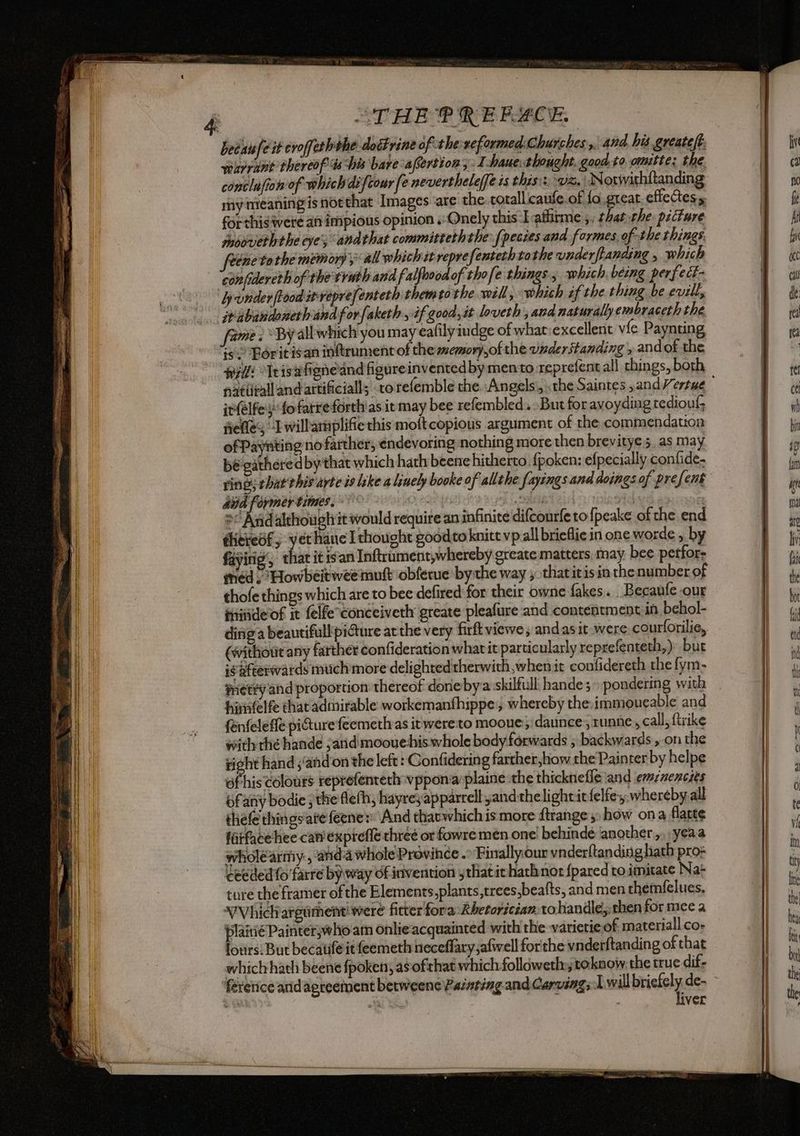 4 THE PREFACE.
becauſe it croſſeth the doctrine of the reformed Churches, and his greateſt
warrant thereof is his bare aſſertion, I haue thought good to omitte: the
concluſion of which diſcourſe nevertheleſſe is this: viz. Notwithſtanding
my meaning is not that Images are the totall cauſe of ſo great effectes,
for this were an impious opinion: Onely this I affirme, that the picture
mooveth the eye, and that committeth the ſpecies and formes of the things
ſeene to the memory, all which it repreſenteth to the vnderſtanding, which
conſidereth of the truth and falſhood of thoſe things, which being perfect-
ly vnderſtood it repreſenteth them to the will, which if the thing be evill,
it abandoneth and forſaketh, if good, it loveth, and naturally embraceth the
ſame. By all which you may eaſily iudge of what excellent vſe Paynting
is. For it is an inſtrument of the memory, of the vnderſtanding, and of the
will: It is a ſigne and figure invented by men to repreſent all things, both
naturall and artificiall; to reſemble the Angels, the Saintes, and Vertue
itſelfe, ſo farre forth as it may bee reſembled. But for avoyding tediouſ-
neſſe, I will amplifie this moſt copious argument of the commendation
of Paynting no farther, endevoring nothing more then brevitye, as may
be gathered by that which hath beene hitherto ſpoken: eſpecially conſide-
ring, that this arte is like a liuely booke of all the ſayings and doings of preſent
and former times.
And although it would require an infinite diſcourſe to ſpeake of the end
thereof, yet haue I thought good to knitt vp all brieflie in one worde, by
ſaying, that it is an Inſtrument, whereby greate matters may bee perfor-
med. Howbeit wee muſt obſerue by the way, that it is in the number of
thoſe things which are to bee deſired for their owne ſakes. Becauſe our
minde of it ſelfe conceiveth greate pleaſure and contentment in behol-
ding a beautifull picture at the very firſt viewe, and as it were courſorilie,
(without any farther conſideration what it particularly repreſenteth,) but
is afterwards much more delighted therwith, when it conſidereth the ſym-
metry and proportion thereof done by a skilfull hande; pondering with
himſelfe that admirable workemanſhippe, whereby the immoueable and
ſenſeleſſe picture ſeemeth as it were to mooue, daunce, runne, call, ſtrike
with the hande, and mooue his whole body forwards, backwards, on the
right hand, and on the left: Conſidering farther, how the Painter by helpe
of his colours repreſenteth vppon a plaine the thickneſſe and eminencies
of any bodie, the fleſh, hayre, apparrell, and the light it ſelfe, whereby all
theſe things are ſeene: And that which is more ſtrange, how on a flatte
ſurface hee can expreſſe three or fowre men one behinde another, yea a
whole army, and a whole Province. Finally our vnderſtanding hath pro-
ceeded ſo farre by way of invention, that it hath not ſpared to imitate Na-
ture the framer of the Elements, plants, trees, beaſts, and men themſelues.
VVhich argument were fitter for a Rhetorician to handle, then for mee a
plaine Painter, who am onlie acquainted with the varietie of materiall co-
lours. But becauſe it ſeemeth neceſſary, aſwell for the vnderſtanding of that
which hath beene ſpoken, as of that which followeth, to know the true dif-
ference and agreement betweene Painting and Carving, I will briefely de-
liver